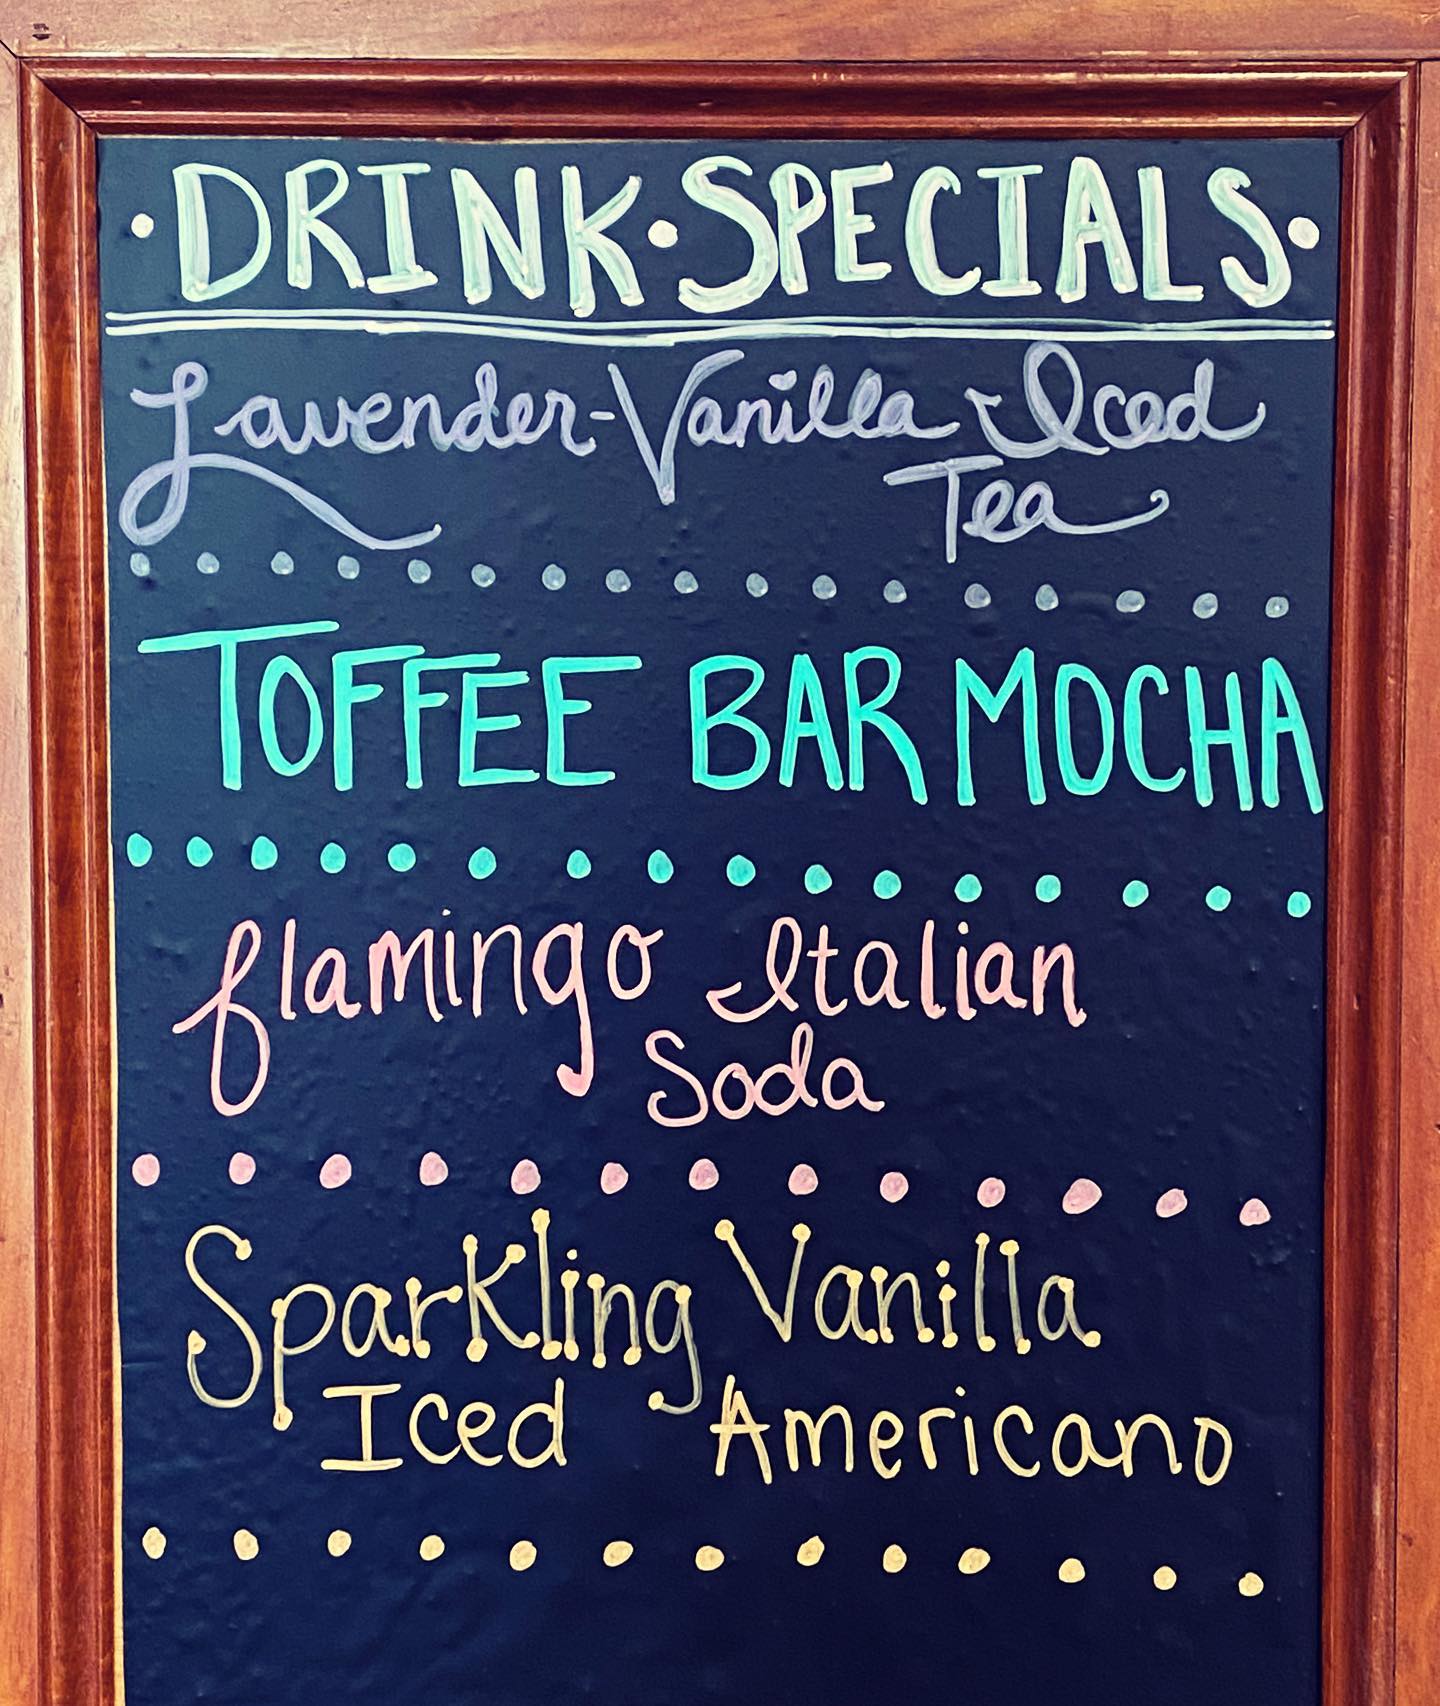 ·DRINK·SPECIALS·
Lavender-Vanilla Iced
Tea
TOFFEE BAR MOCHA
flamingo Italian
Soda
Sparkling Vanilla
Iced Americano